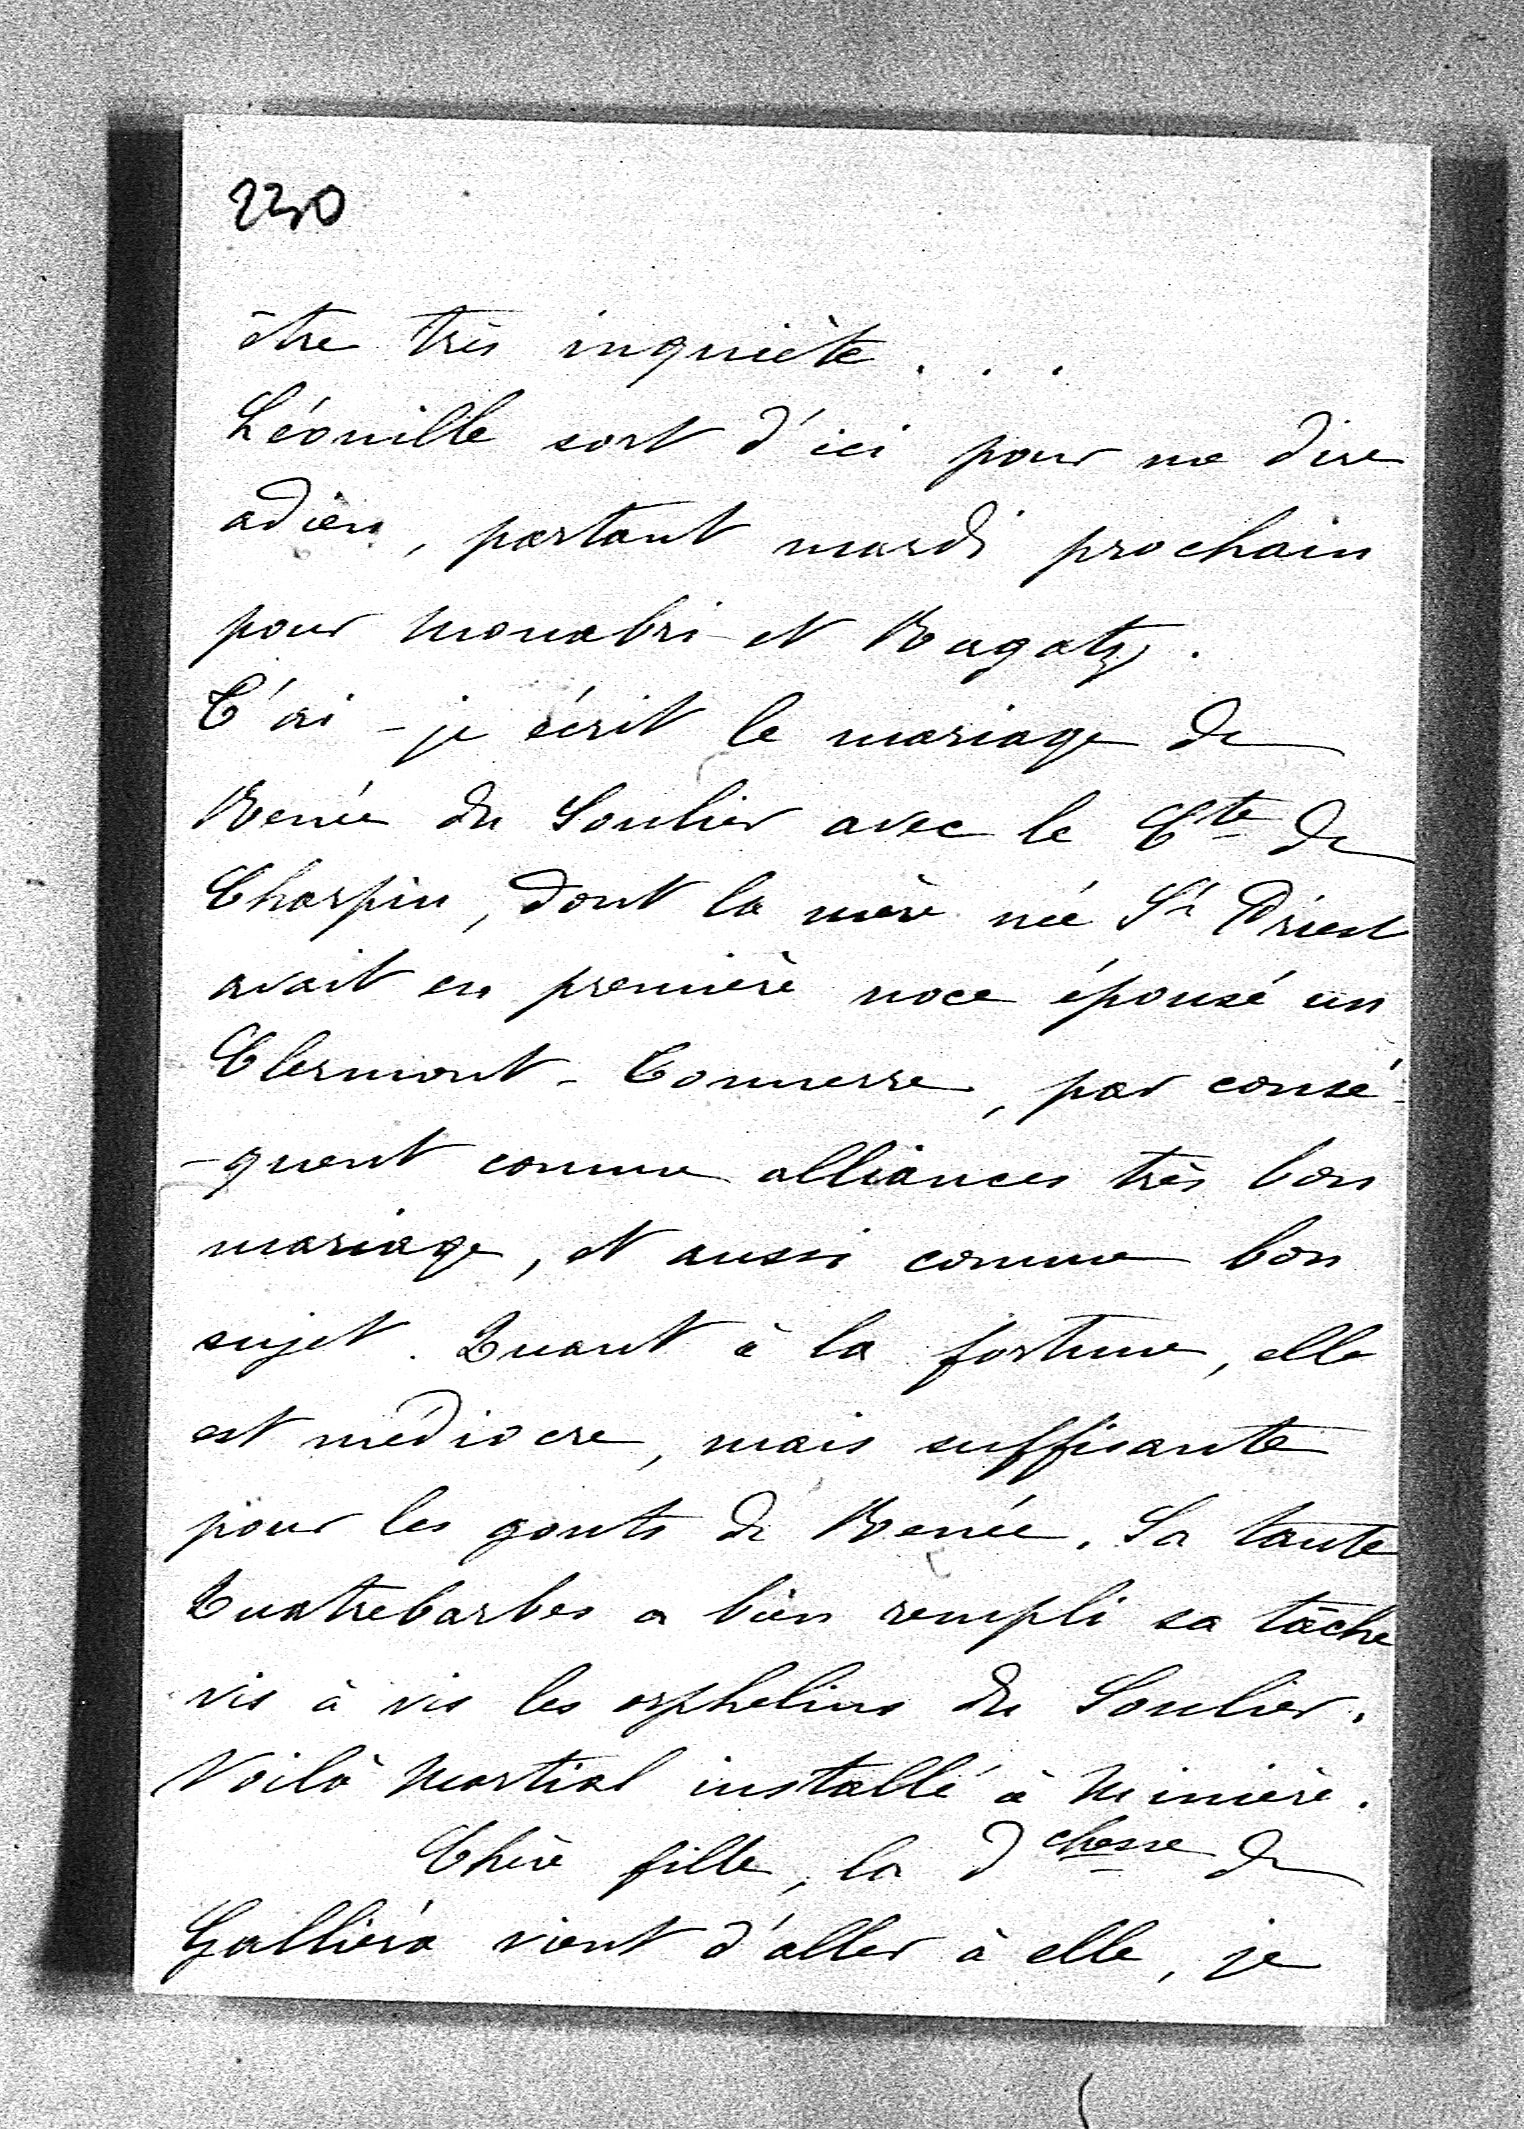 230
être très inquiète . . .
Léonille sort d'ici pour me dire
adieu, partant mardi prochain
pour Monabri et Ragatz.
T'ai-je écrit le mariage de
Renée du Soulier avec le Cte de
Charpin, dont la mère née St Priest
avait en première noce épousé un
Clermont-Tonnerre, par consé-
-quent comme alliances très bon
mariage, et aussi comme bon
sujet. Quant à la fortune, elle
est médiocre, mais suffisante
pour les gouts de Renée. Sa tante
Quatrebarbes a bien rempli sa tâche
vis à vis les orphelins du Soulier.
Voilà Martial installé à Minière.
Chère fille, la dchesse de
Galliéra vient d'aller à elle, je